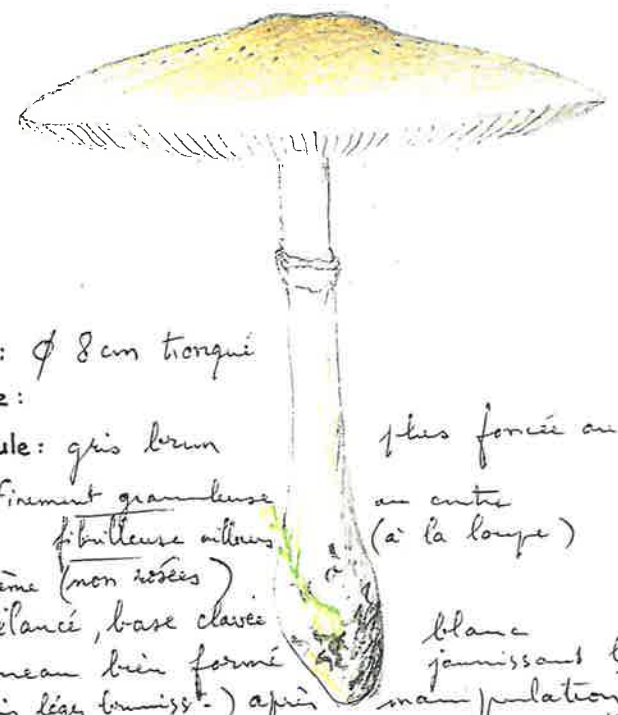 : ϕ 8 cm tronqué
e :
ule : gris brun plus foncée au
finement granuleuse au centre
fibrilleuse ailleurs (à la loupe)
ème (non rosées)
élancé, base clavée blanc
neau bien formé jaunissant
is léger bruniss-) après manipulation